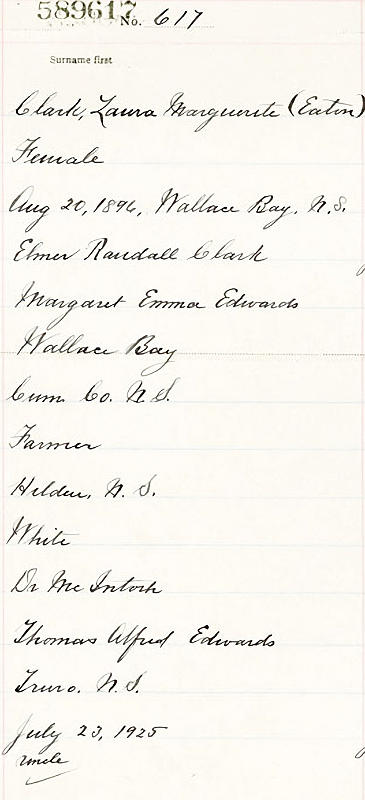 589617
No. 617
Surname first
Clark, Laura Marguerite (Eaton)
Female
Aug 20, 1896, Wallace Bay, N.S.
Elmer Randall Clark
Margaret Emma Edwards
Wallace Bay
Cum. Co. N.S.
Farmer
Hilden, N.S.
White
Dr McIntosh
Thomas Alfred Edwards
Truro. N.S.
July 23, 1925
uncle